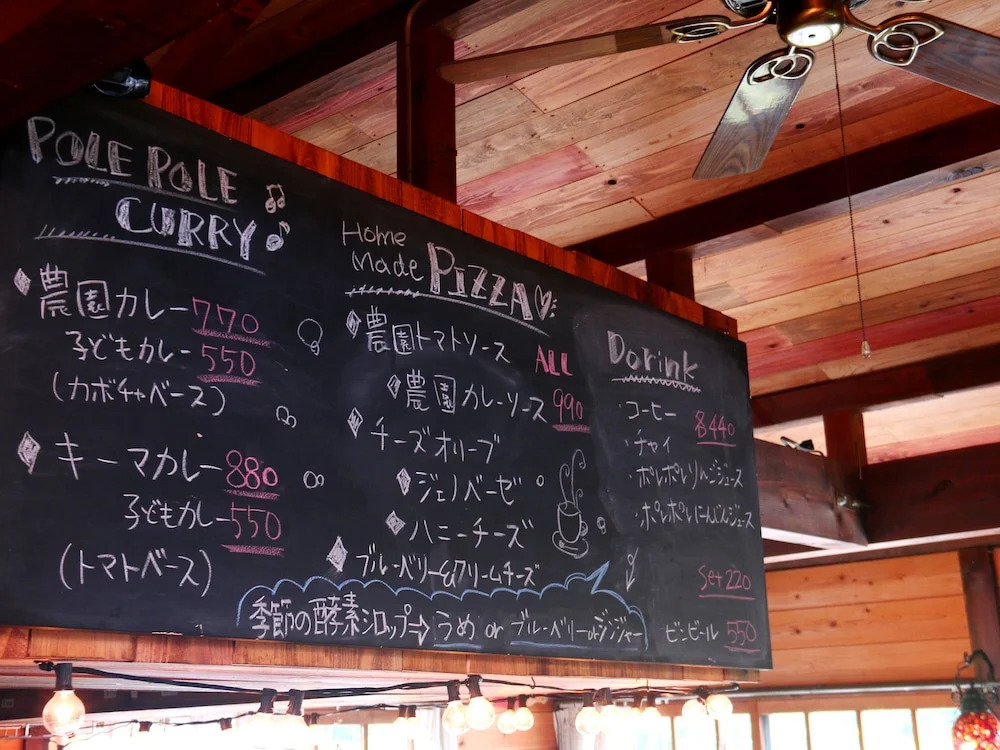 POLE POLE
CURRY
農園カレー 770
子どもカレー 550
(カボチャベース)
キーマカレー 880
子どもカレー 550
(トマトベース)
Home
Made PIZZA
農園トマトソース
ALL
農園カレーソース 990
チーズオリーブ
ジェノベーゼ
ハニーチーズ
ブルーベリー&クリームチーズ
季節の酵素シロップ⇒うめ or ブルーベリー or ジンジャー
Dorink
・コーヒー 各440
・チャイ
・ポレポレりんごジュース
・ポレポレにんじんジュース
Set 220
ビンビール 550